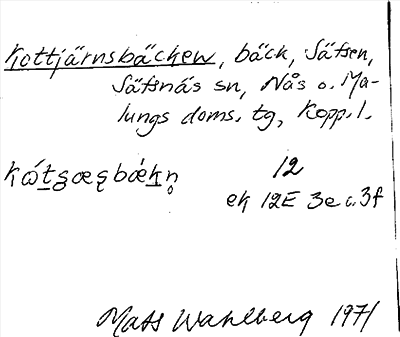 Kottjärnsbäcken, bäck, Säfsen,
Säfsnäs sn, Nås o. Ma-
lungs doms. tg, Kopp. l.
12
ek 12E 3e o. 3f
Mats Wahlberg 1971